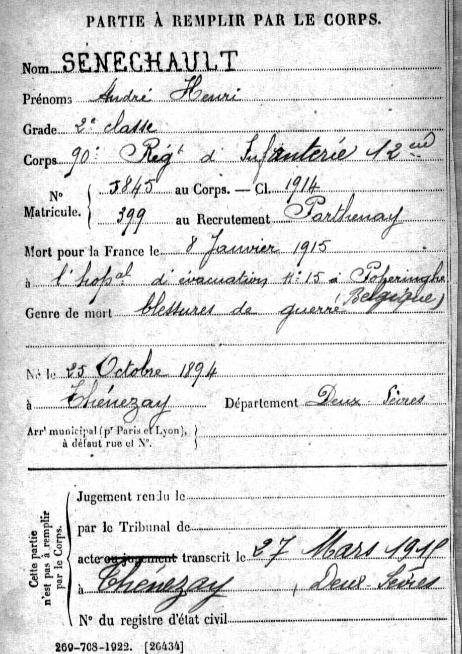 PARTIE À REMPLIR PAR LE CORPS.
Nom SÉNÉCHAULT
Prénoms André Henri
Grade 2e classe
Corps 90e Régt d'Infanterie 12 cie
N° Matricule. { 5845 au Corps. — Cl. 1914
399 au Recrutement Parthenay
Mort pour la France le 8 Janvier 1915
à l'hopal d'évacuation n° 15 à Poperinghe
(Belgique)
Genre de mort blessures de guerre
Né le 25 Octobre 1894
à Thénezay Département Deux-Sèvres
Arrt municipal (pr Paris et Lyon),
à défaut rue et N°.
Cette partie n'est pas à remplir par le Corps.
Jugement rendu le
par le Tribunal de
acte ou jugement transcrit le 27 Mars 1915
à Thénezay, Deux-Sèvres
N° du registre d'état civil
269-708-1922. [26434]